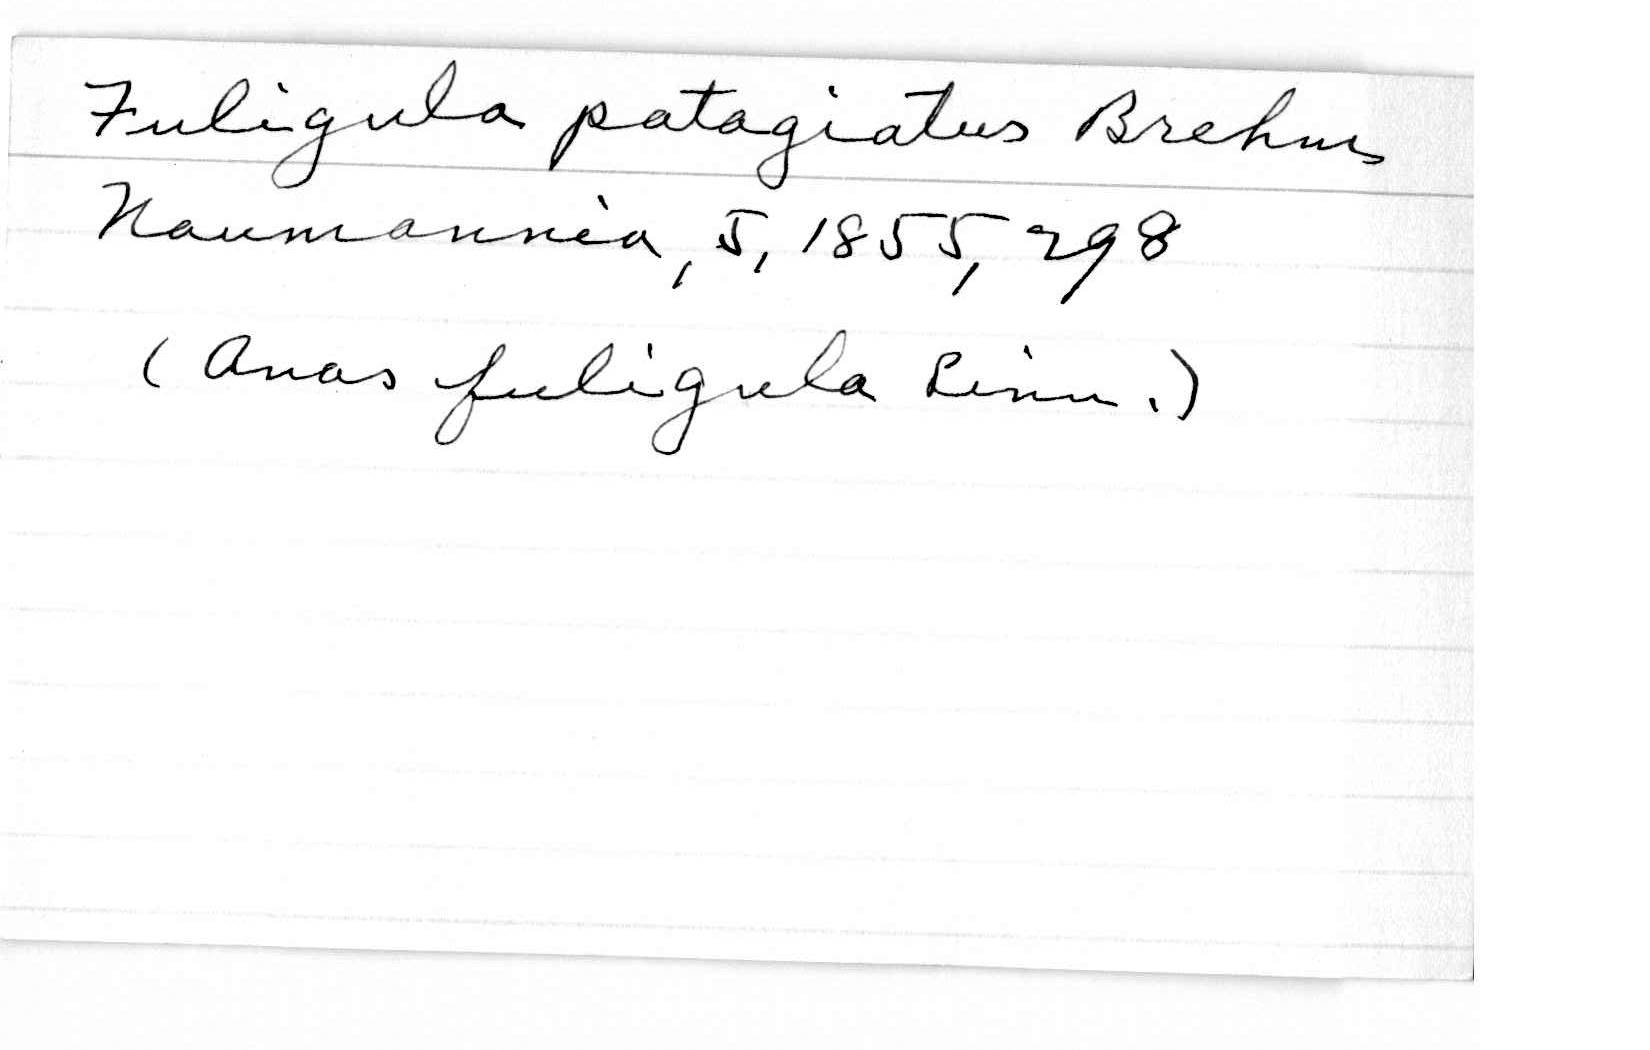 Fuligula patagiatus Brehm
Naumannia, 5, 1855, 298
(Anas fuligula Linn.)